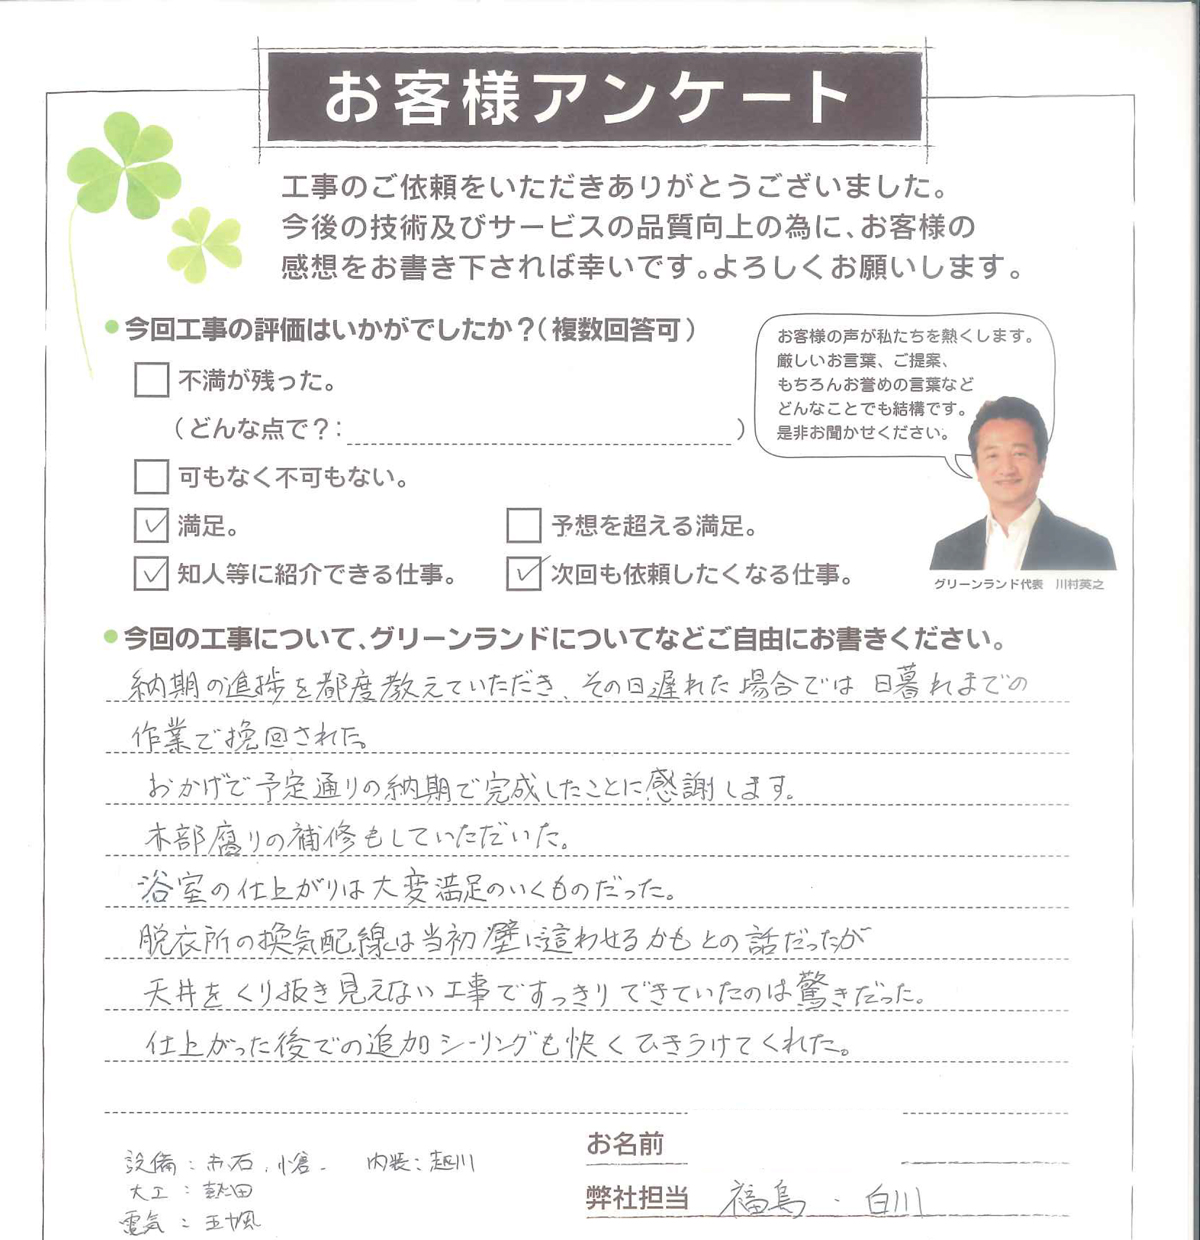 お客様アンケート
工事のご依頼をいただきありがとうございました。
今後の技術及びサービスの品質向上の為に、お客様の
感想をお書き下されば幸いです。よろしくお願いします。
今回工事の評価はいかがでしたか？(複数回答可)
不満が残った。
(どんな点で？:)
可もなく不可もない。
満足。
予想を超える満足。
知人等に紹介できる仕事。
次回も依頼したくなる仕事。
お客様の声が私たちを熱くします。
厳しいお言葉、ご提案、
もちろんお誉めの言葉など
どんなことでも結構です。
是非お聞かせください。
グリーンランド代表 川村英之
今回の工事について、グリーンランドについてなどご自由にお書きください。
納期の進捗を都度教えていただき、その日遅れた場合では日暮れまでの
作業で挽回された。
おかげで予定通りの納期で完成したことに感謝します。
木部腐りの補修もしていただいた。
浴室の仕上がりは大変満足のいくものだった。
脱衣所の換気配線は当初壁に這わせるかもとの話だったが
天井をくり抜き見えない工事ですっきりできていたのは驚きだった。
仕上がった後での追加シーリングも快くひきうけてくれた。
設備：赤石、小倉. 内装：越川
大工：熱田
電気：
お名前
弊社担当 福島・白川